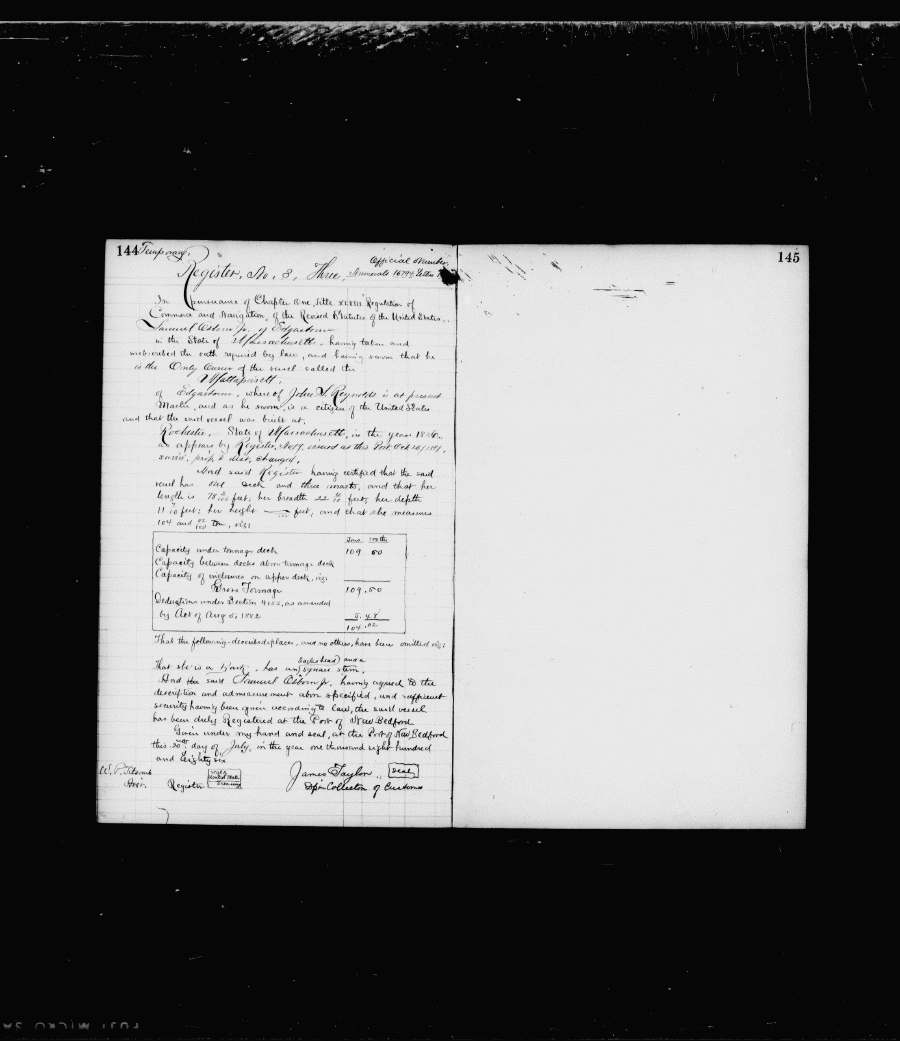 144 Temporary. 145
Official Number,
Register, No. 3, Three, Numerals 16794 Letters
In pursuance of Chapter One, Title XLVIII Regulation of
Commerce and Navigation, of the Revised Statutes of the United States,
Samuel Osborn Jr. of Edgartown
in the State of Massachusetts, having taken and
subscribed the oath required by law, and having sworn that he
is the Only Owner of the vessel called the
Mattapoisett,
of Edgartown, whereof John S. Reynolds is at present
Master, and as he sworn, is a citizen of the United States
and that the said vessel was built at
Rochester, State of Massachusetts, in the year 1836,
as appears by Register, No 19, issued at this Port, Oct
prop & dist. changed,
And said Register having certified that the said
vessel has One Deck and three masts, and that her
length is 78 feet; her breadth 22 feet; her depth
11 feet; her height — feet; and that she measures
104 and 02/100 tons, viz:
Tons 100ths
Capacity under tonnage deck 109 50
Capacity between decks above tonnage deck
Capacity of inclosures on upper deck, viz:
Gross Tonnage 109.50
Deductions under Section 4153, as amended
by Act of Aug 5, 1882 5.48
104.02
That the following-described places, and no others, have been omitted viz:
That she is a Bark, has an Eagle head and a square stern,
And the said Samuel Osborn Jr. having agreed to the
description and admeasurement above specified, and sufficient
security having been given according to law, the said vessel
has been duly Registered at the Port of New Bedford
Given under my hand and seal, at the Port of New Bedford
this 20th day of July, in the year one thousand eight hundred
and Eighty six
W. P. Titcomb
Register
United States
Treasury
James Taylor, Seal
Dep. Collector of Customs